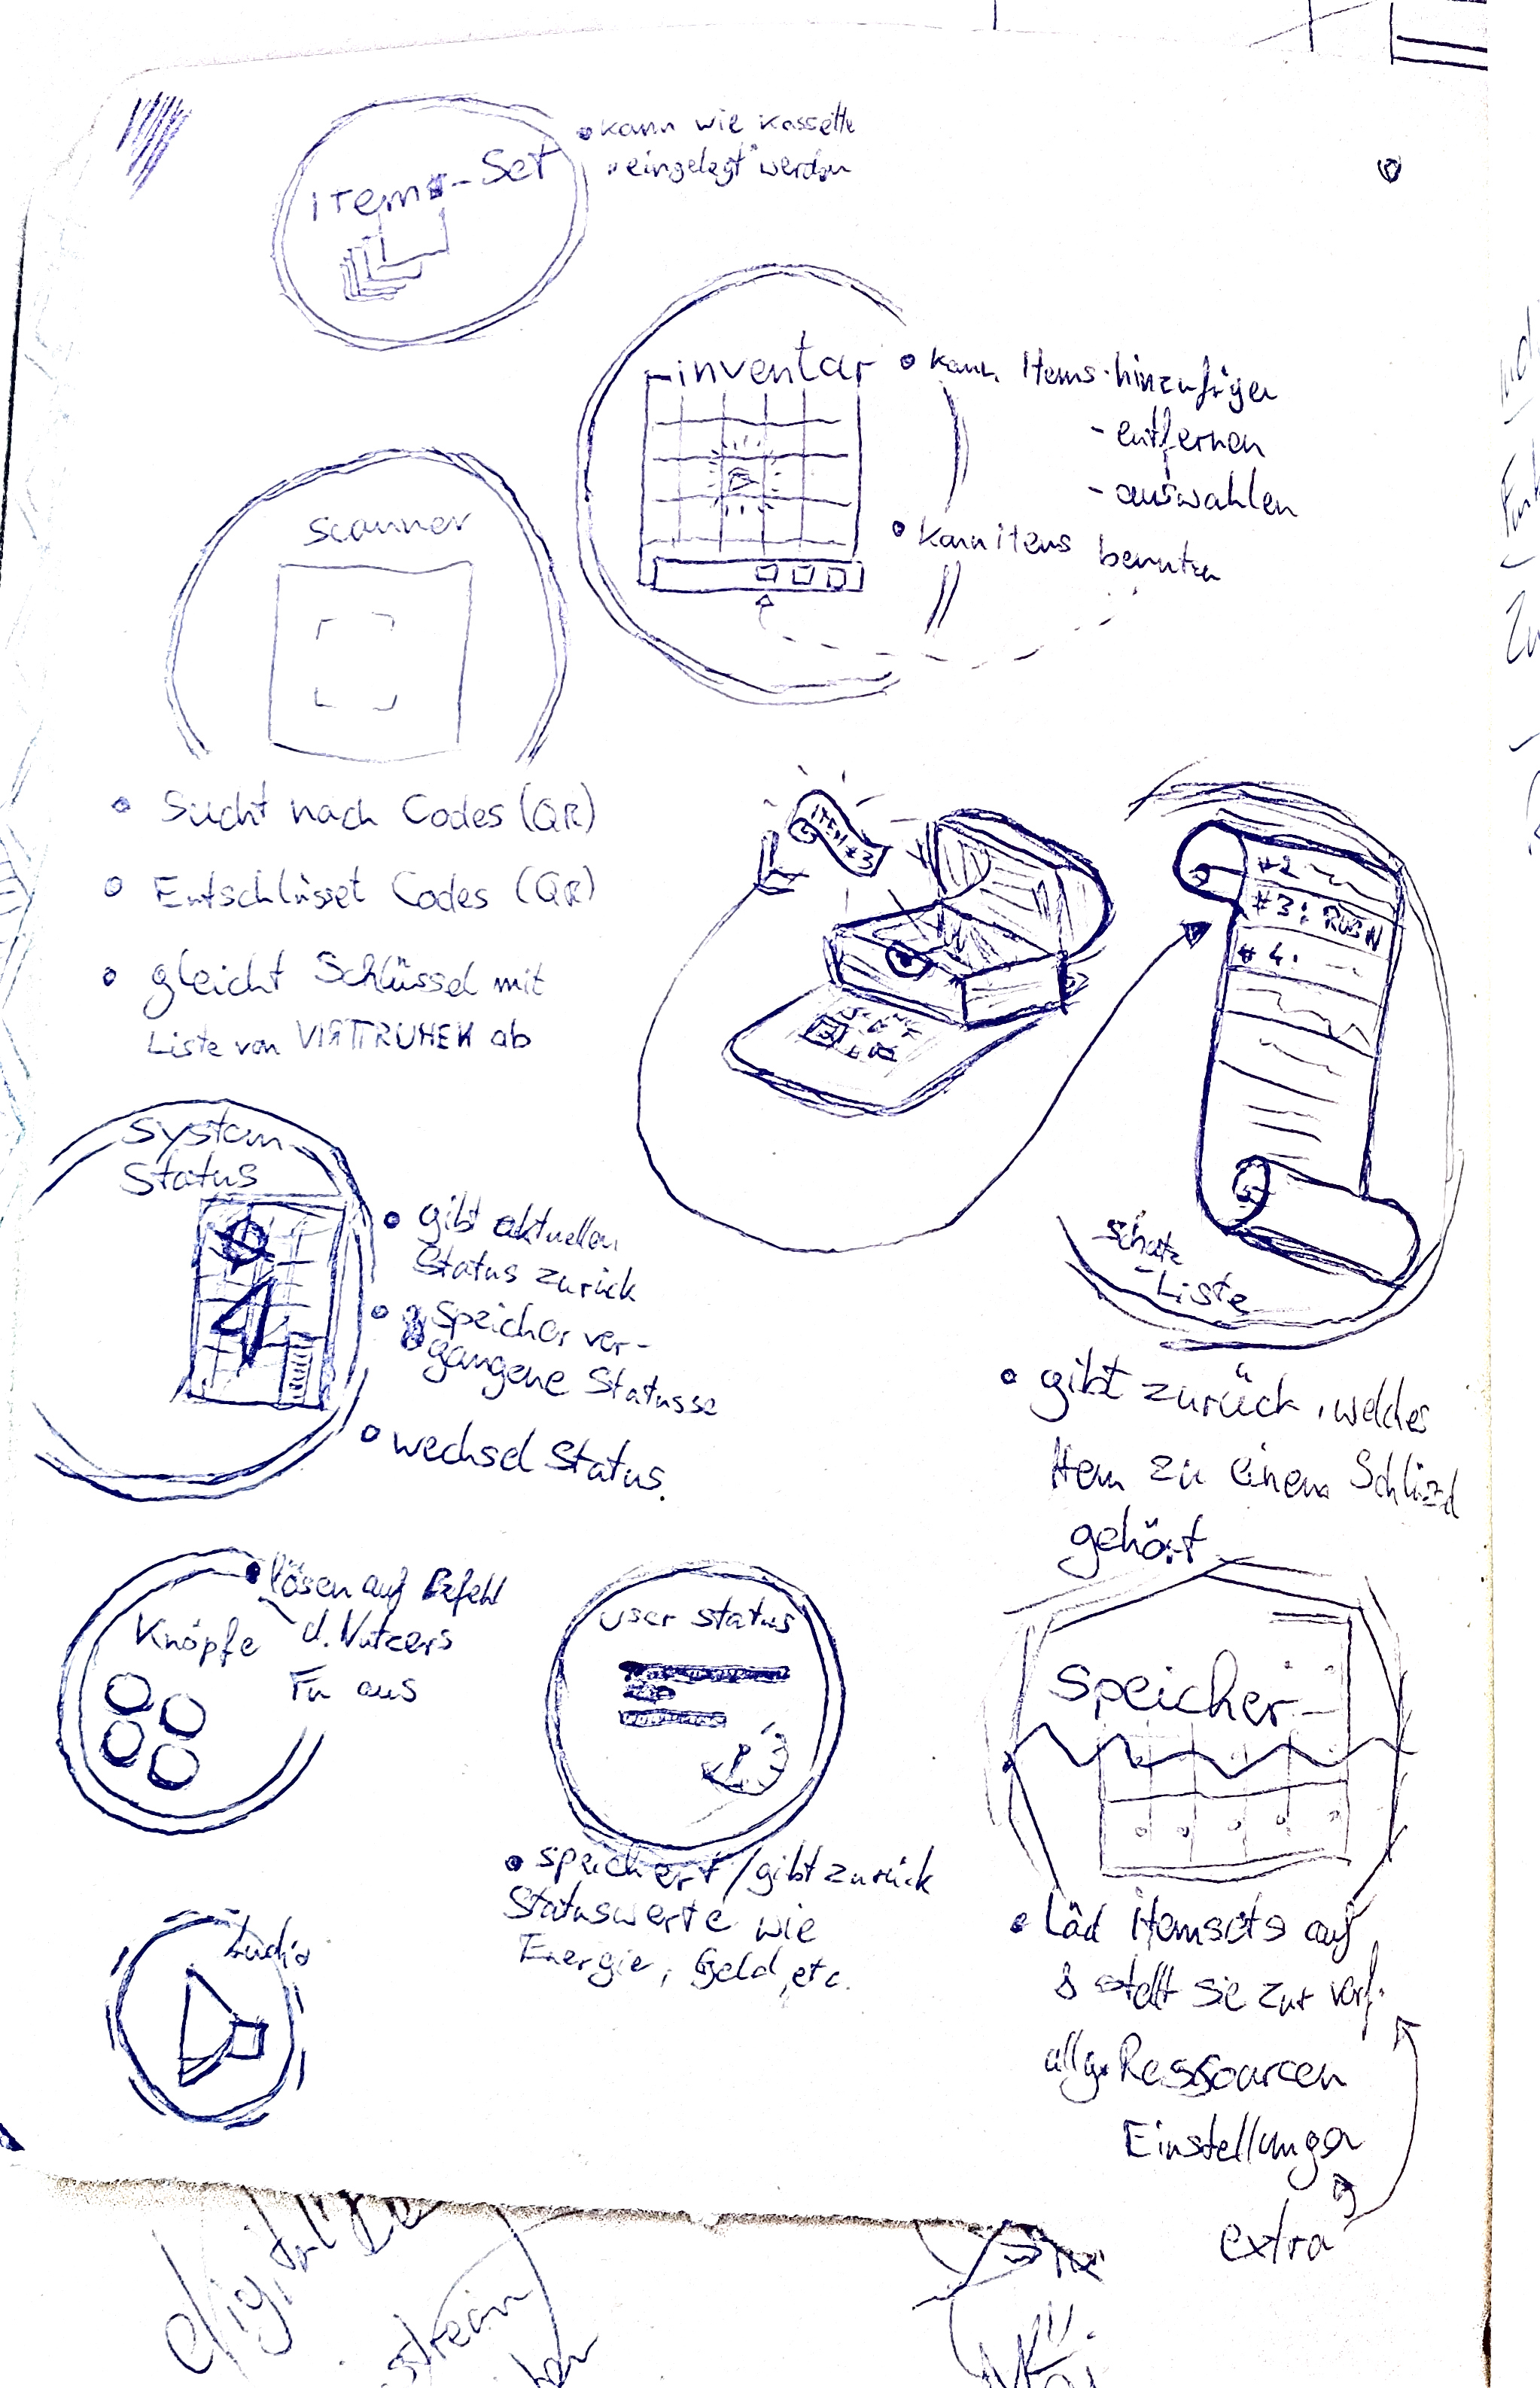 Item-Set
• kann wie Kassette
"eingelegt" werden
inventar
• kann Items hinzufügen
- entfernen
- auswahlen
• Kann items benutzen
scanner
• Sucht nach Codes (QR)
• Entschlüsset Codes (QR)
• gleicht Schlüssel mit
Liste von VIRTTRUHEN ab
ITEM #3
#2
#3: RUBIN
#4:
Schatz
-Liste
• gibt zurück, welches
Item zu einem Schlüssel
gehört
System
Status
4
• gibt aktuellen
Status zurück
• Speicher ver-
gangene Statusse
• wechsel Status.
Knöpfe
• lösen auf Befehl
d. Nutzers
Fu aus
user status
• speichert/gibt zurück
Statuswerte wie
Energie, Geld, etc.
Speicher
• Läd itemsets auf
& stellt sie zur verf.
allg. Ressourcen
Einstellungen
extra
Audio
digitalize